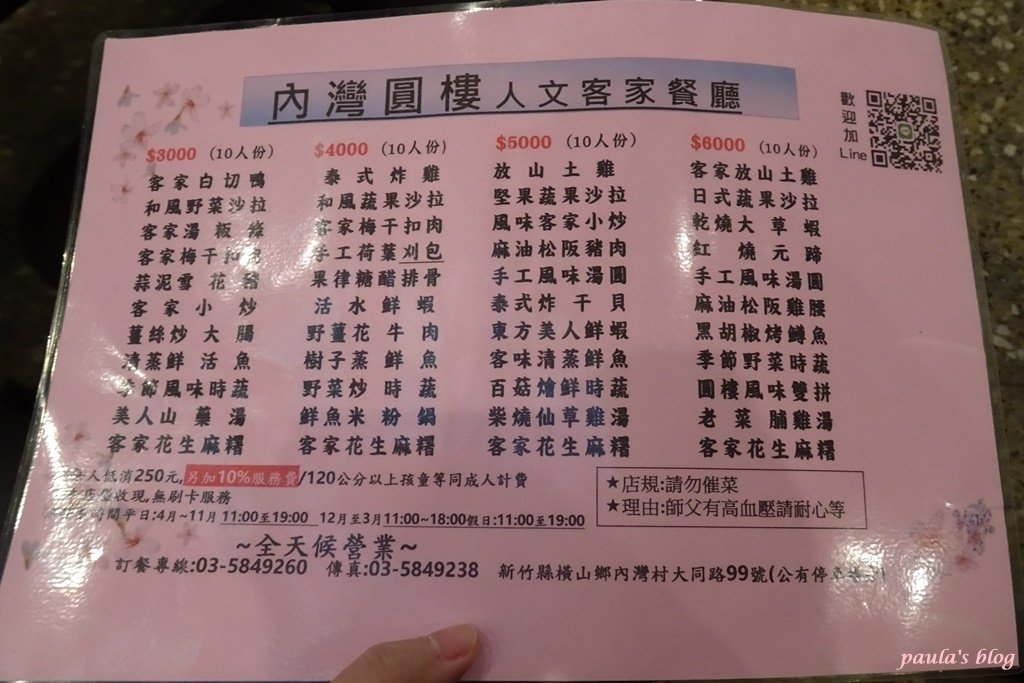 內灣圓樓人文客家餐廳
歡迎加
Line
$3000 (10人份)
客家白切鴨
和風野菜沙拉
客家湯粄條
客家梅干扣
蒜泥雪花豬
客家小炒
薑絲炒大腸
清蒸鮮活魚
季節風味時蔬
美人山藥湯
客家花生麻糬
$4000 (10人份)
泰式炸雞
和風蔬果沙拉
客家梅干扣肉
手工荷葉刈包
果律糖醋排骨
活水鮮蝦
野薑花牛肉
樹子蒸鮮魚
野菜炒時蔬
鮮魚米粉鍋
客家花生麻糬
$5000 (10人份)
放山土雞
堅果蔬果沙拉
風味客家小炒
麻油松阪豬肉
手工風味湯圓
泰式炸干貝
東方美人鮮蝦
客味清蒸鮮魚
百菇燴鮮時蔬
柴燒仙草雞湯
客家花生麻糬
$6000 (10人份)
客家放山土雞
日式蔬果沙拉
乾燒大草蝦
紅燒元蹄
手工風味湯圓
麻油松阪雞腰
黑胡椒烤鱒魚
季節野菜時蔬
圓樓風味雙拼
老菜脯雞湯
客家花生麻糬
人低消250元,另加10%服務費/120公分以上孩童等同成人計費
收現,無刷卡服務
時間平日:4月~11月 11:00至19:00 12月至3月11:00~18:00假日:11:00至19:00
~全天候營業~
訂餐專線:03-5849260 傳真:03-5849238 新竹縣橫山鄉內灣村大同路99號(公有停
★店規:請勿催菜
★理由:師父有高血壓請耐心等
paula's blog